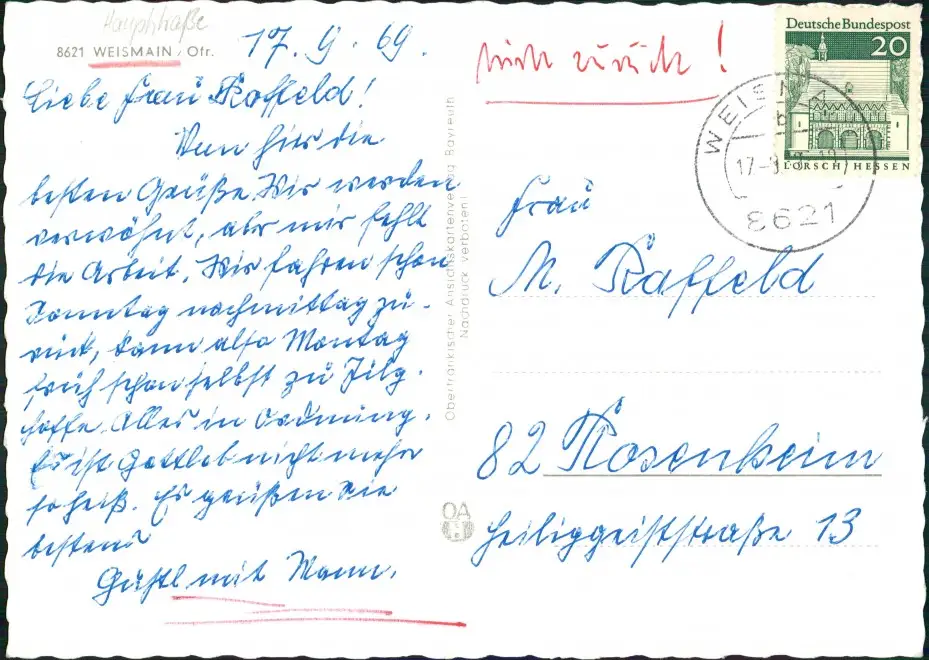 Hauptstraße
8621 WEISMAIN, Ofr.
17. 9. 69.
Liebe Frau Raffeld!
Von hier die
besten Grüße. Wir werden
verwöhnt, aber mir fehlt
die Arbeit. Wir fahren schon
Sonntag nachmittag zu-
rück, kann also Montag
früh schon selbst zu
hoffe Alles in Ordnung.
Es ist Gottlob nicht mehr
so heiß. Es grüßen Sie
bestens
Gustl mit Mann.
Oberfränkischer Ansichtskartenverlag Bayreuth
Nachdruck verboten!
OA
zurück!
Deutsche Bundespost
20
LORSCH/HESSEN
WEISMAIN
8621
Frau
M. Raffeld
82 Rosenheim
Heiliggeiststraße 13